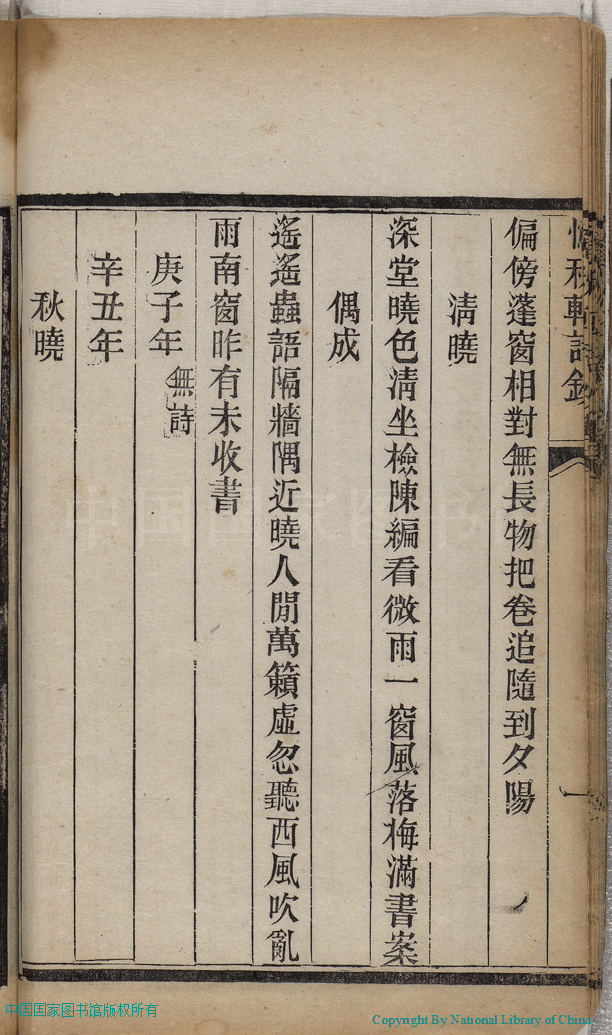 秋軒詩鈔
偏傍蓬窗相對無長物把卷追隨到夕陽
清曉
深堂曉色清坐檢陳編看微雨一窗風落梅滿書案
偶成
遙遙蟲語隔牆隅近曉人閒萬籟虛忽聽西風吹亂
雨南窗昨有未收書
庚子年無詩
辛丑年
秋曉
中国国家图书馆版权所有
Copyright By National Library of China